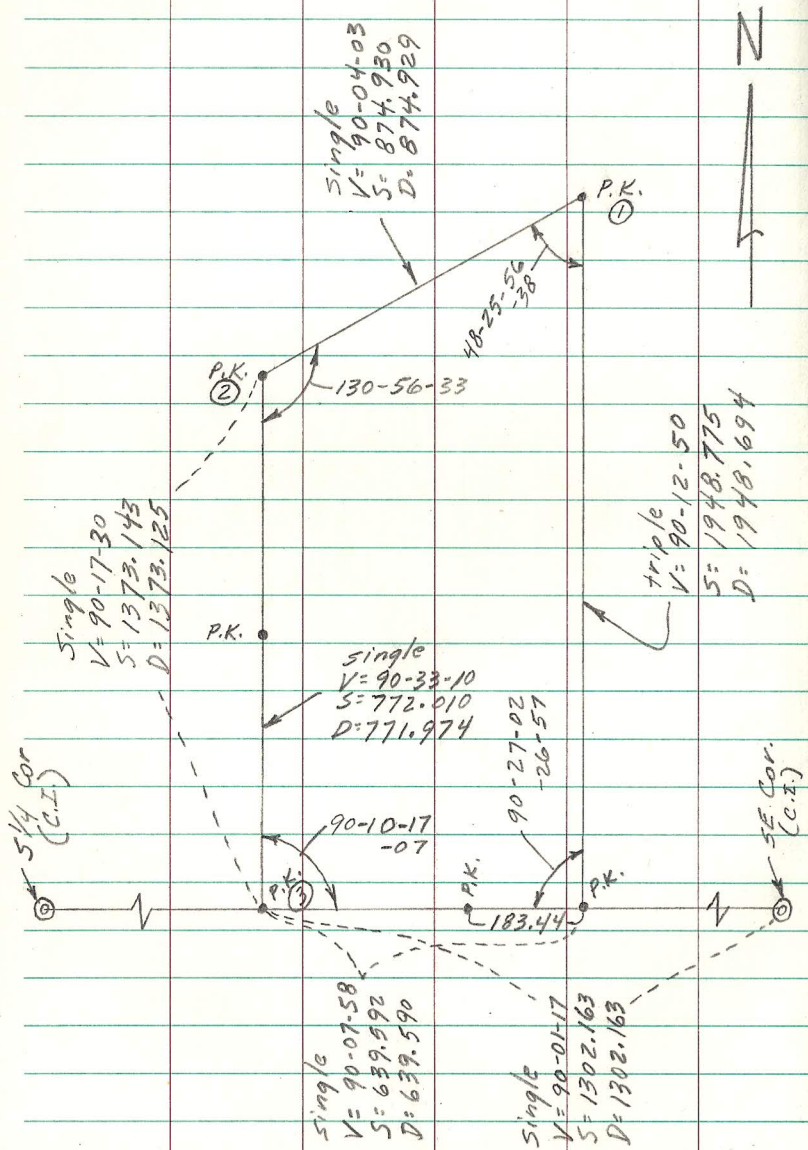 N
single
V= 90-04-03
S= 874.930
D= 874.929
P.K.
①
48-25-56
-38
P.K.
②
130-56-33
Single
V= 90-17-30
S= 1373.143
D= 1373.125
P.K.
single
V= 90-33-10
S= 772.010
D= 771.974
triple
V= 90-12-50
S= 1948.775
D= 1948.694
90-27-02
-26-57
90-10-17
-07
S 1/4 Cor
(C.I.)
P.K. ③
P.K.
183.44
P.K.
SE Cor.
(C.I.)
single
V= 90-07-58
S= 639.592
D= 639.590
Single
V= 90-01-17
S= 1302.163
D= 1302.163